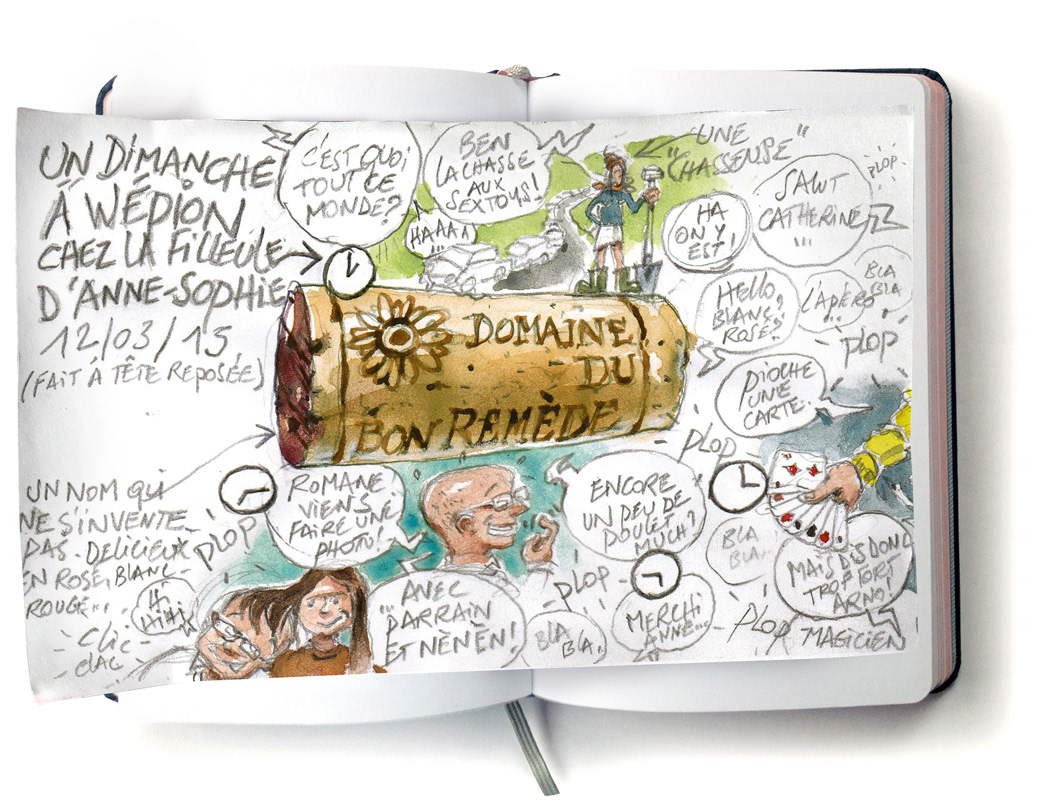 UN DIMANCHE
À WÉPION
CHEZ LA FILLEULE
D'ANNE-SOPHIE
12/03/15
(FAIT À TÊTE REPOSÉE)
C'EST QUOI
TOUT CE
MONDE?
BEN
LA CHASSE
AUX
SEXTOYS!
HAAAA
...
"UNE
"CHASSEUSE"
HA
ON Y
EST!
SALUT
CATHERINE
...
PLOP
HELLO,
BLANC,
ROSÉ?
L'APÉRO
...
BLA
BLA
PLOP
DOMAINE
DU
BON REMÈDE
PIOCHE
UNE
CARTE.
PLOP
UN NOM QUI
NE S'INVENTE
PAS. DELICIEUX
EN ROSÉ, BLANC
ROUGE...
PLOP
ROMANE,
VIENS
FAIRE UNE
PHOTO!
ENCORE
UN PEU DE
POULET
MUCH?
BLA
BLA..
MAIS DIS DONC
TROP FORT
ARNO!
HI
HIHI
CLIC
CLAC
AVEC
PARRAIN
ET NÈNÈN!
PLOP
BLA
BLA.
MERCHI
ANNE...
PLOP MAGICIEN